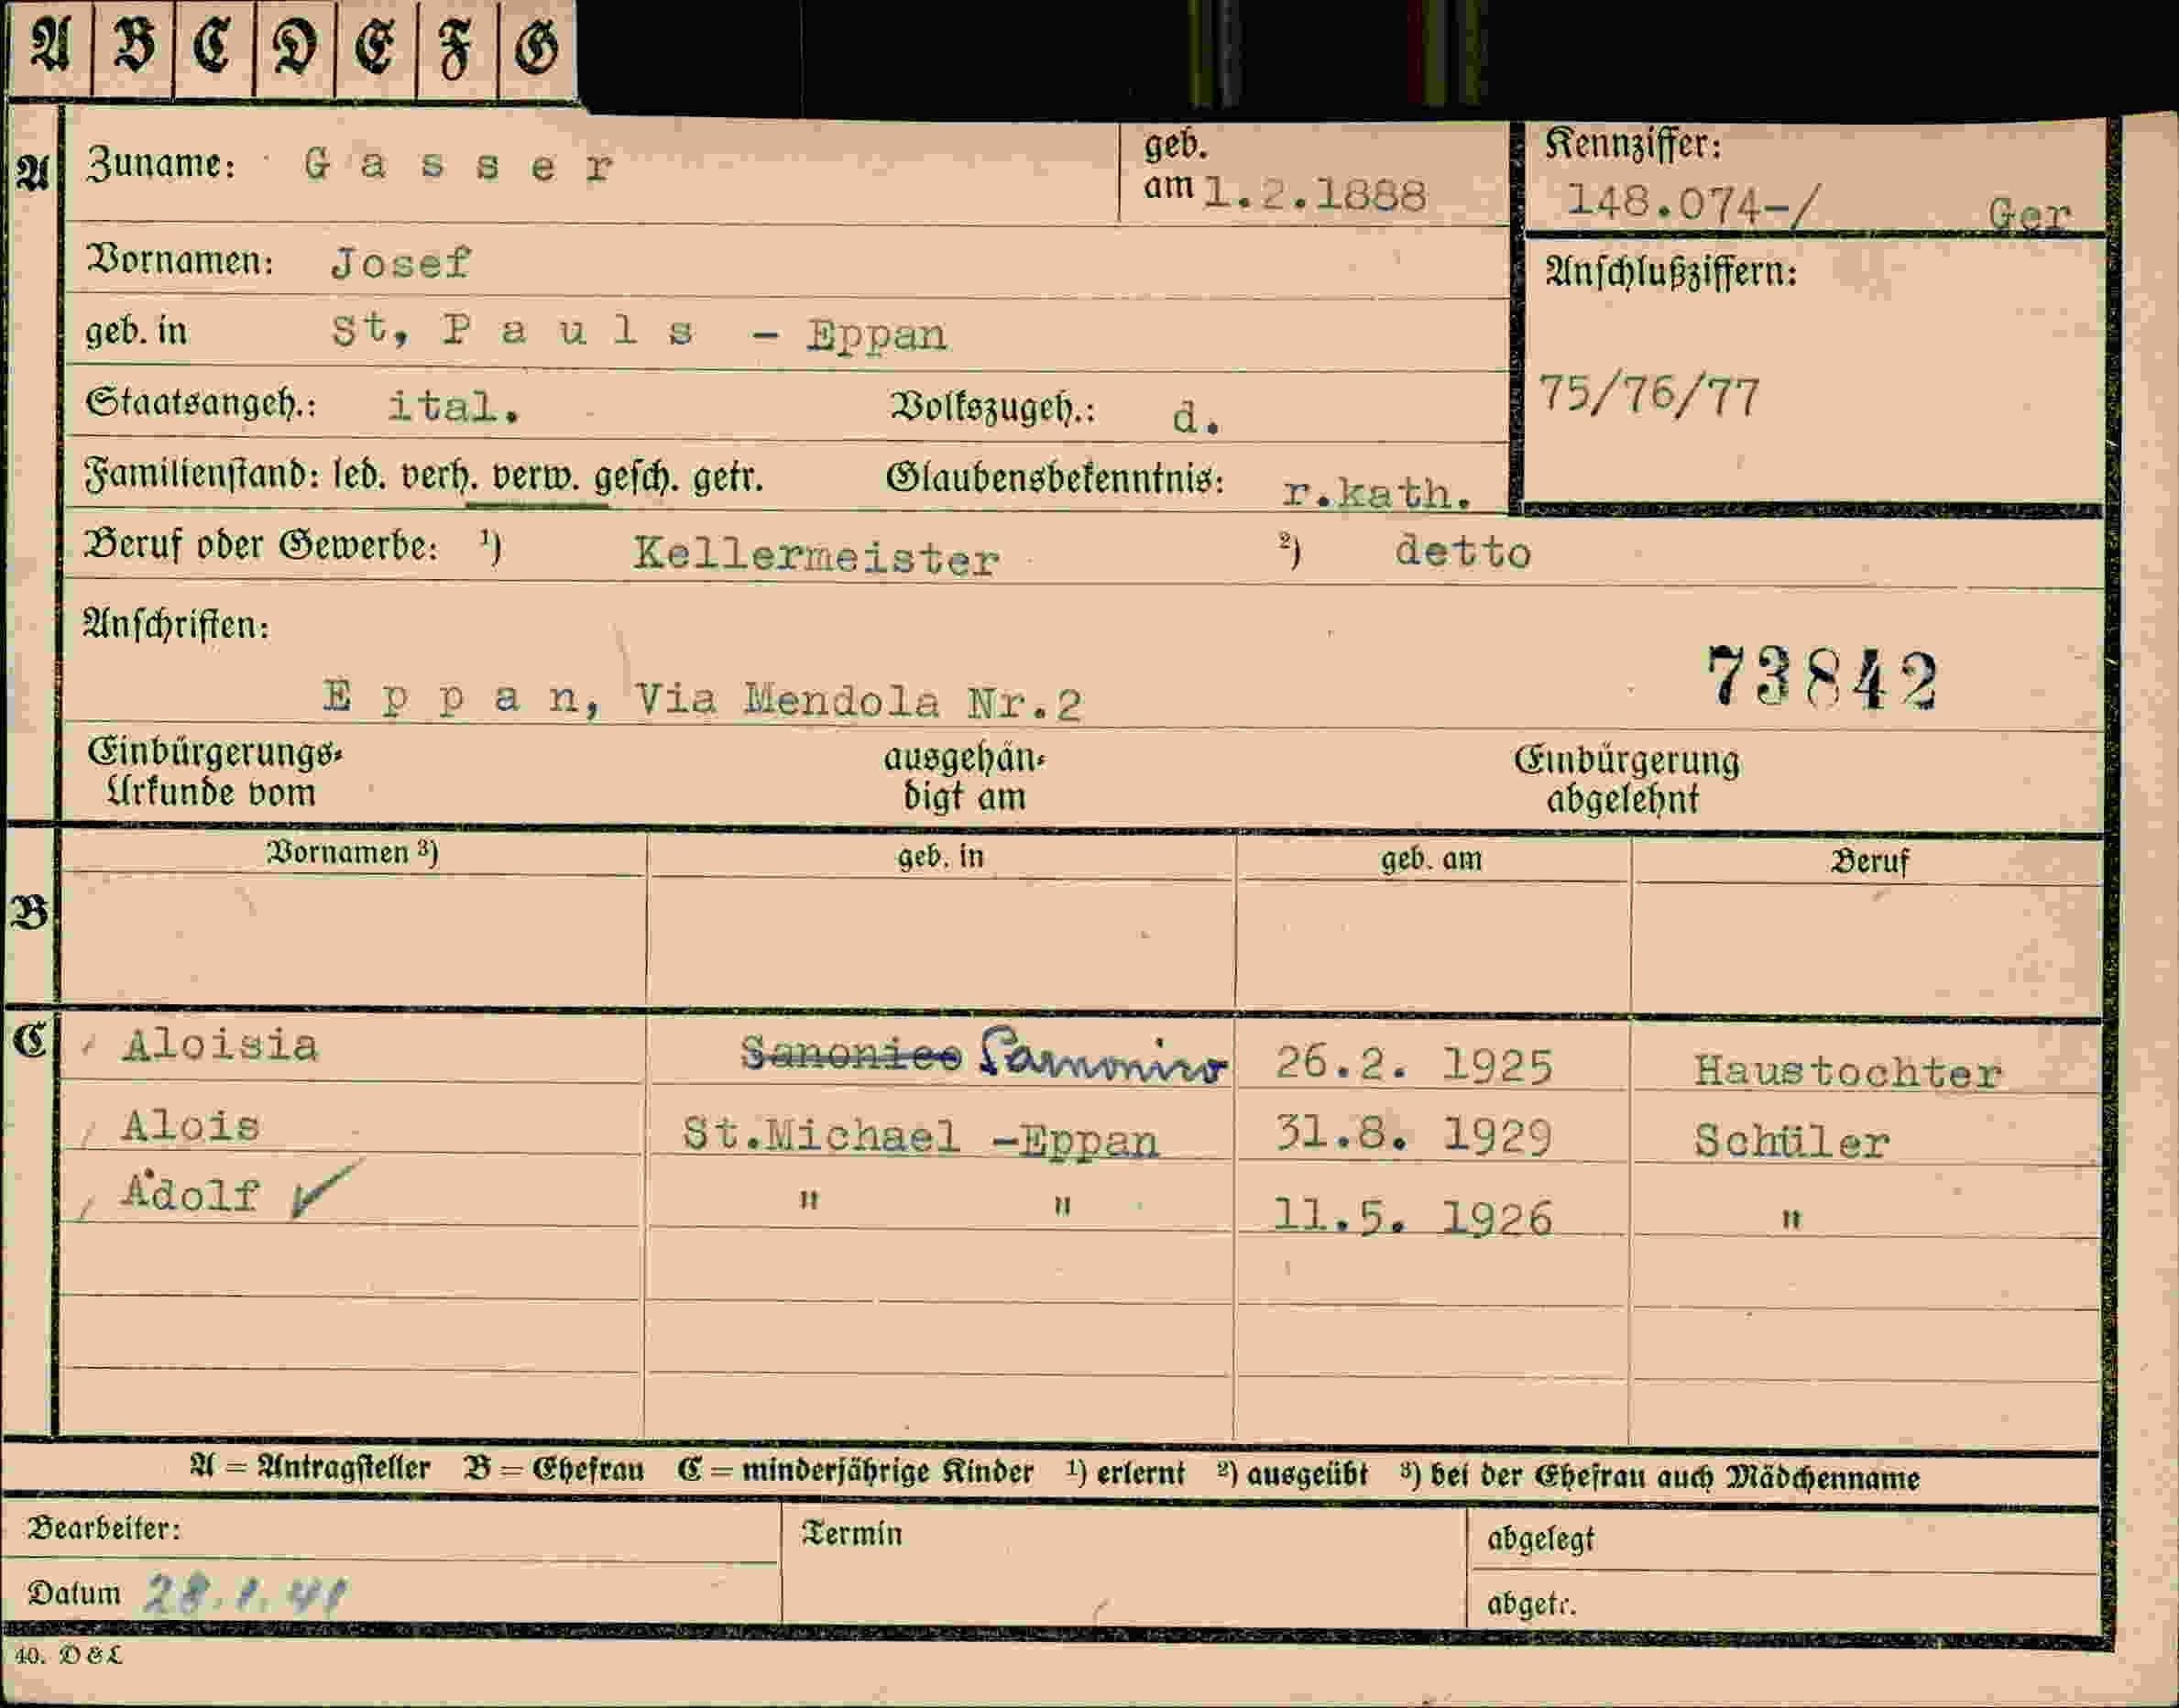 A B C D E F G
A Zuname: G a s s e r geb. am 1.2.1888 Kennziffer: 148.074-/ Ger
Vornamen: Josef Anschlußziffern:
geb. in St, P a u l s - Eppan
Staatsangeh.: ital. Volkszugeh.: d. 75/76/77
Familienstand: led. verh. verw. gesch. getr. Glaubensbekenntnis: r.kath.
Beruf oder Gewerbe: 1) Kellermeister 2) detto
Anschriften:
73842
E p p a n, Via Mendola Nr.2
Einbürgerungs- ausgehän- Einbürgerung
Urkunde vom digt am abgelehnt
Vornamen 3) geb. in geb. am Beruf
B
C Aloisia Sanonico 26.2. 1925 Haustochter
Alois St.Michael -Eppan 31.8. 1929 Schüler
Adolf ✓ " " 11.5. 1926 "
A = Antragsteller B = Ehefrau C = minderjährige Kinder 1) erlernt 2) ausgeübt 3) bei der Ehefrau auch Mädchenname
Bearbeiter: Termin abgelegt
Datum 28.1.41 abgetr.
40. D & L